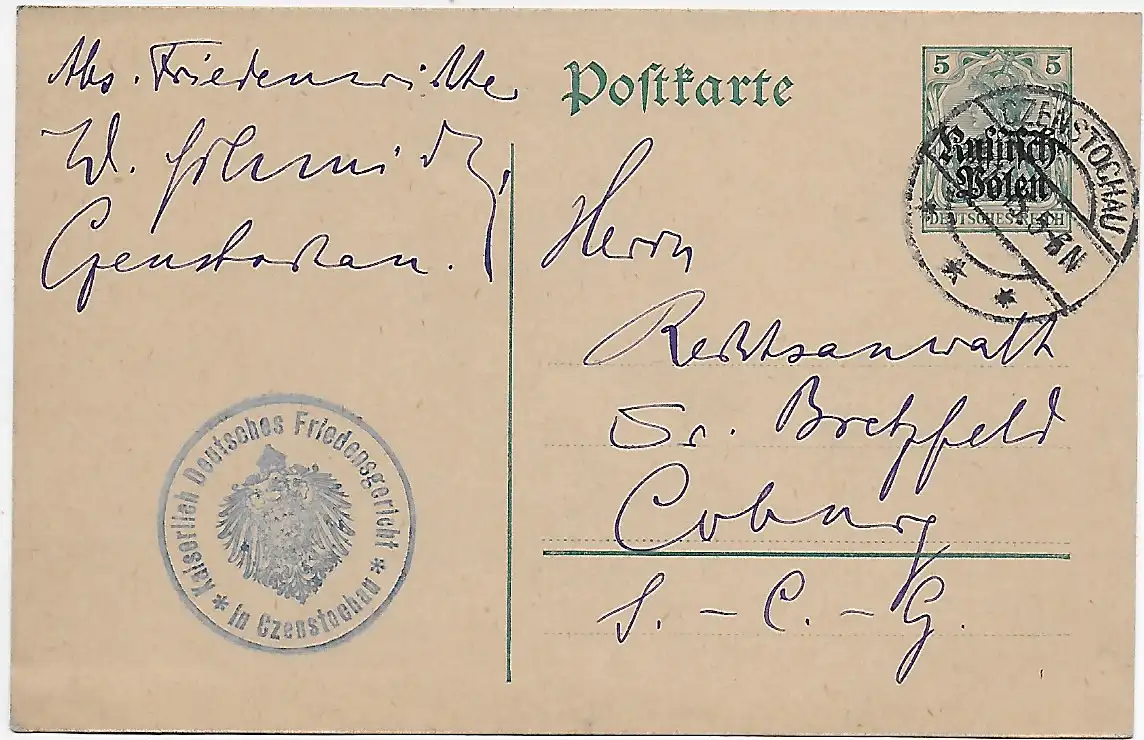 Abs. Friedensrichter
W. Schmidt,
Czenstochau.
Postkarte
5 5
Russisch
Polen
DEUTSCHES REICH
CZENSTOCHAU
5-6 N
Herrn
Rechtsanwalt
Dr. Bretzfeld
Coburg
S. - C. - G.
Kaiserlich Deutsches Friedensgericht
* in Czenstochau *